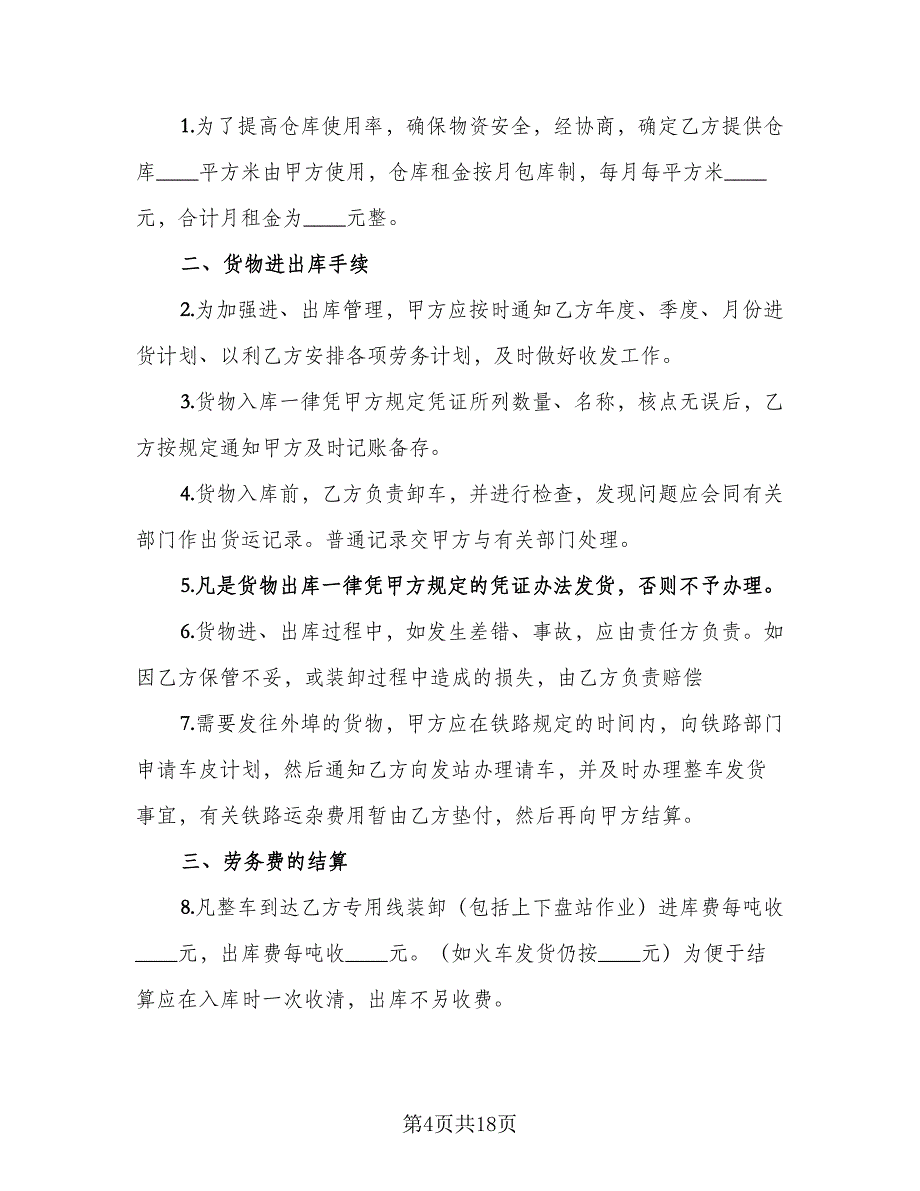 1.为了提高仓库使用率，确保物资安全，经协商，确定乙方提供仓
库____平方米由甲方使用，仓库租金按月包库制，每月每平方米____
元，合计月租金为____元整。
二、货物进出库手续
2.为加强进、出库管理，甲方应按时通知乙方年度、季度、月份进
货计划、以利乙方安排各项劳务计划，及时做好收发工作。
3.货物入库一律凭甲方规定凭证所列数量、名称，核点无误后，乙
方按规定通知甲方及时记账备存。
4.货物入库前，乙方负责卸车，并进行检查，发现问题应会同有关
部门作出货运记录。普通记录交甲方与有关部门处理。
5.凡是货物出库一律凭甲方规定的凭证办法发货，否则不予办理。
6.货物进、出库过程中，如发生差错、事故，应由责任方负责。如
因乙方保管不妥，或装卸过程中造成的损失，由乙方负责赔偿
7.需要发往外埠的货物，甲方应在铁路规定的时间内，向铁路部门
申请车皮计划，然后通知乙方向发站办理请车，并及时办理整车发货
事宜，有关铁路运杂费用暂由乙方垫付，然后再向甲方结算。
三、劳务费的结算
8.凡整车到达乙方专用线装卸（包括上下盘站作业）进库费每吨收
____元，出库费每吨收____元。（如火车发货仍按____元）为便于结
算应在入库时一次收清，出库不另收费。
第4页共18页